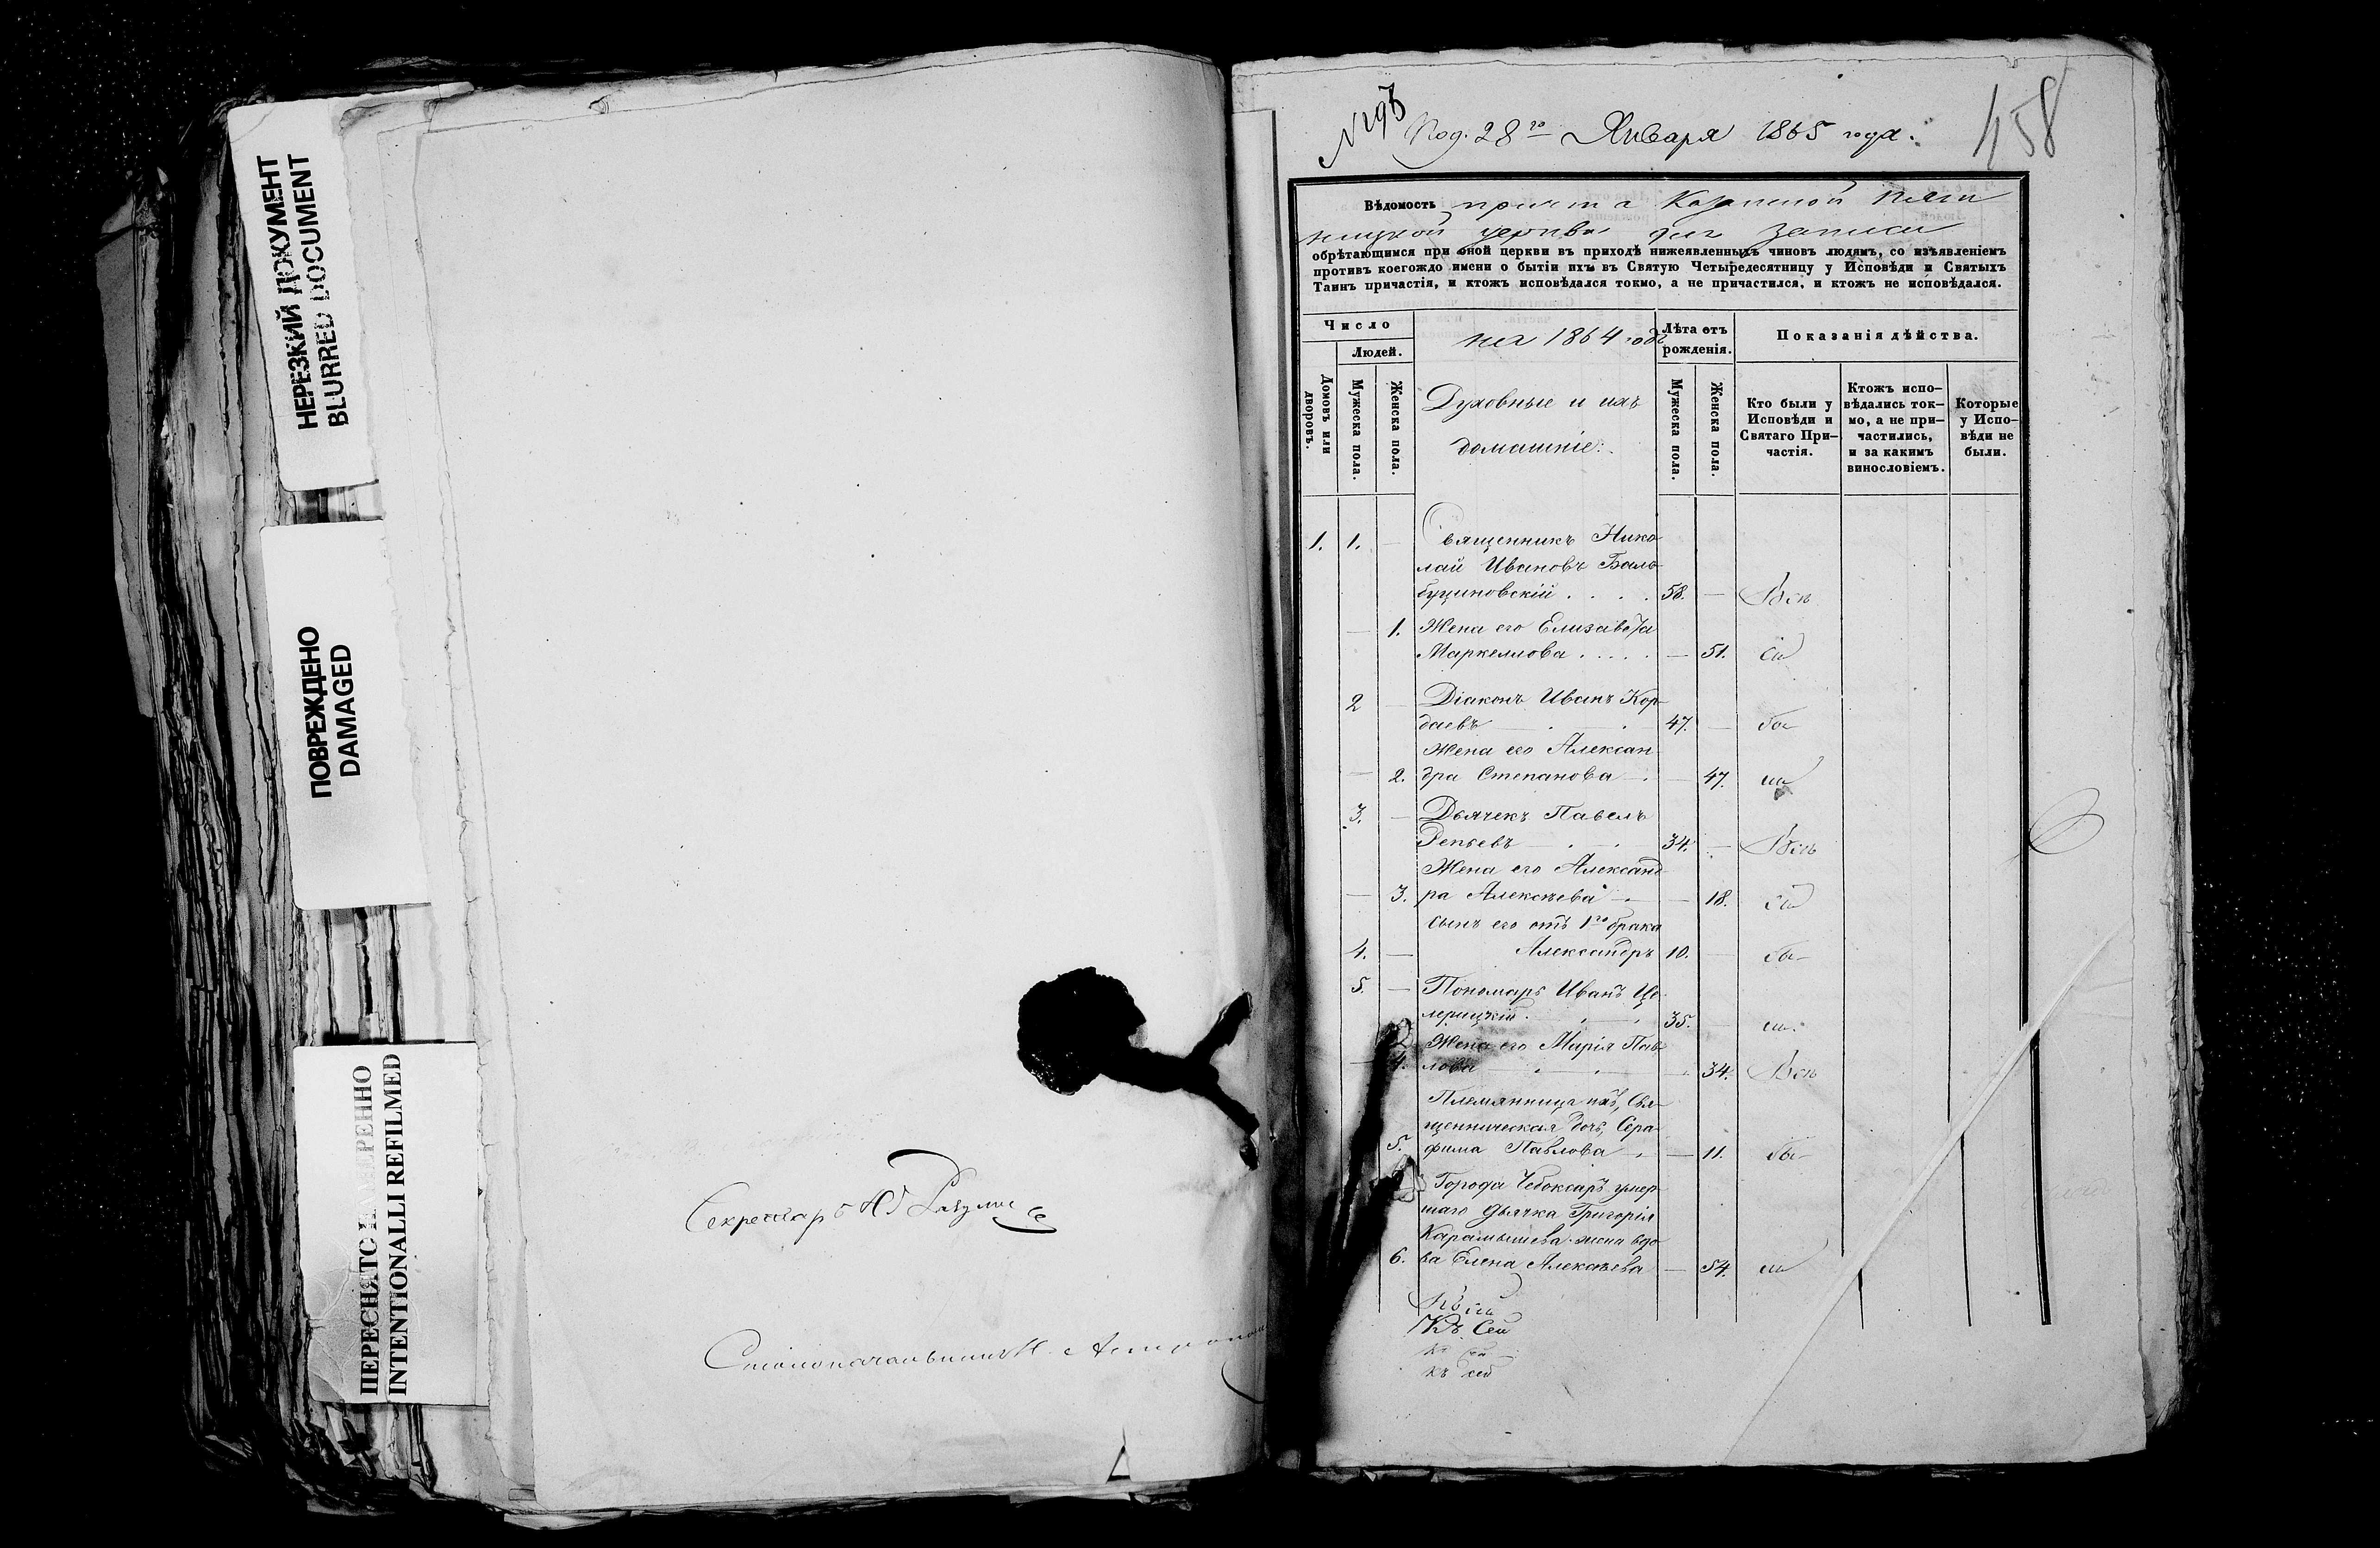 НЕРЕЗКИЙ ДОКУМЕНТ
BLURRED DOCUMENT
ПОВРЕЖДЕНО
DAMAGED
ПЕРЕСНЯТО НАМЕРЕННО
INTENTIONALLI REFILMED
Секретарь
Столоначальникъ
Под. 28го Января 1865 года.
458
Вѣдомость причта Казанской Пят
ницкой церкви для записи
обрѣтающимся при оной церкви въ приходѣ нижеявленныхъ чиновъ людямъ, со изъявленіемъ
противъ коегождо имени о бытіи ихъ въ Святую Четыредесятницу у Исповѣди и Святыхъ
Таинъ причастія, и ктожъ исповѣдался токмо, а не причастился, и ктожъ не исповѣдался.
Число
Людей.
Домовъ или дворовъ.
Мужеска пола.
Женска пола.
на 1864 годъ
Духовные и ихъ
домашніе:
Лѣта отъ
рожденія.
Мужеска пола.
Женска пола.
Показанія дѣйства.
Кто были у
Исповѣди и
Святаго При–
частія.
Ктожъ испо–
вѣдались ток–
мо, а не при–
частились,
и за какимъ
винословіемъ.
Которые
у Испо–
вѣди не
были.
1. 1. — Священникъ Нико
лай Ивановъ Бало
бущиновскій . . . . 58. —
— 1. Жена его Елизавета
Маркеллова . . . . — 51.
2 — Діаконъ Иванъ Кор
даевъ 47. —
Жена его Алексан
— 2. дра Степанова — 47.
3. — Дьячекъ Павелъ
Репьевъ 34. —
Жена его Александ
— 3. ра Алексѣева — 18.
сынъ его отъ 1го брака
4. — Александръ 10. —
5. — Пономарь Иванъ Це
лерицкій 35. —
Жена его Марія Пав
— 4. лова — 34.
Племянница ихъ, Свя
щенническая дочь, Сера
5. фима Павлова — 11.
Города Чебоксаръ умер
шаго дьячка Григорія
Карамышева жена вдо
6. ва Елена Алексѣева — 54.
Къ сей
Къ сей